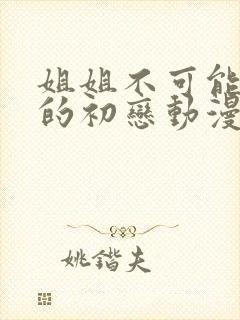 姐姐不可能
的初戀動漫
姚鍇夫